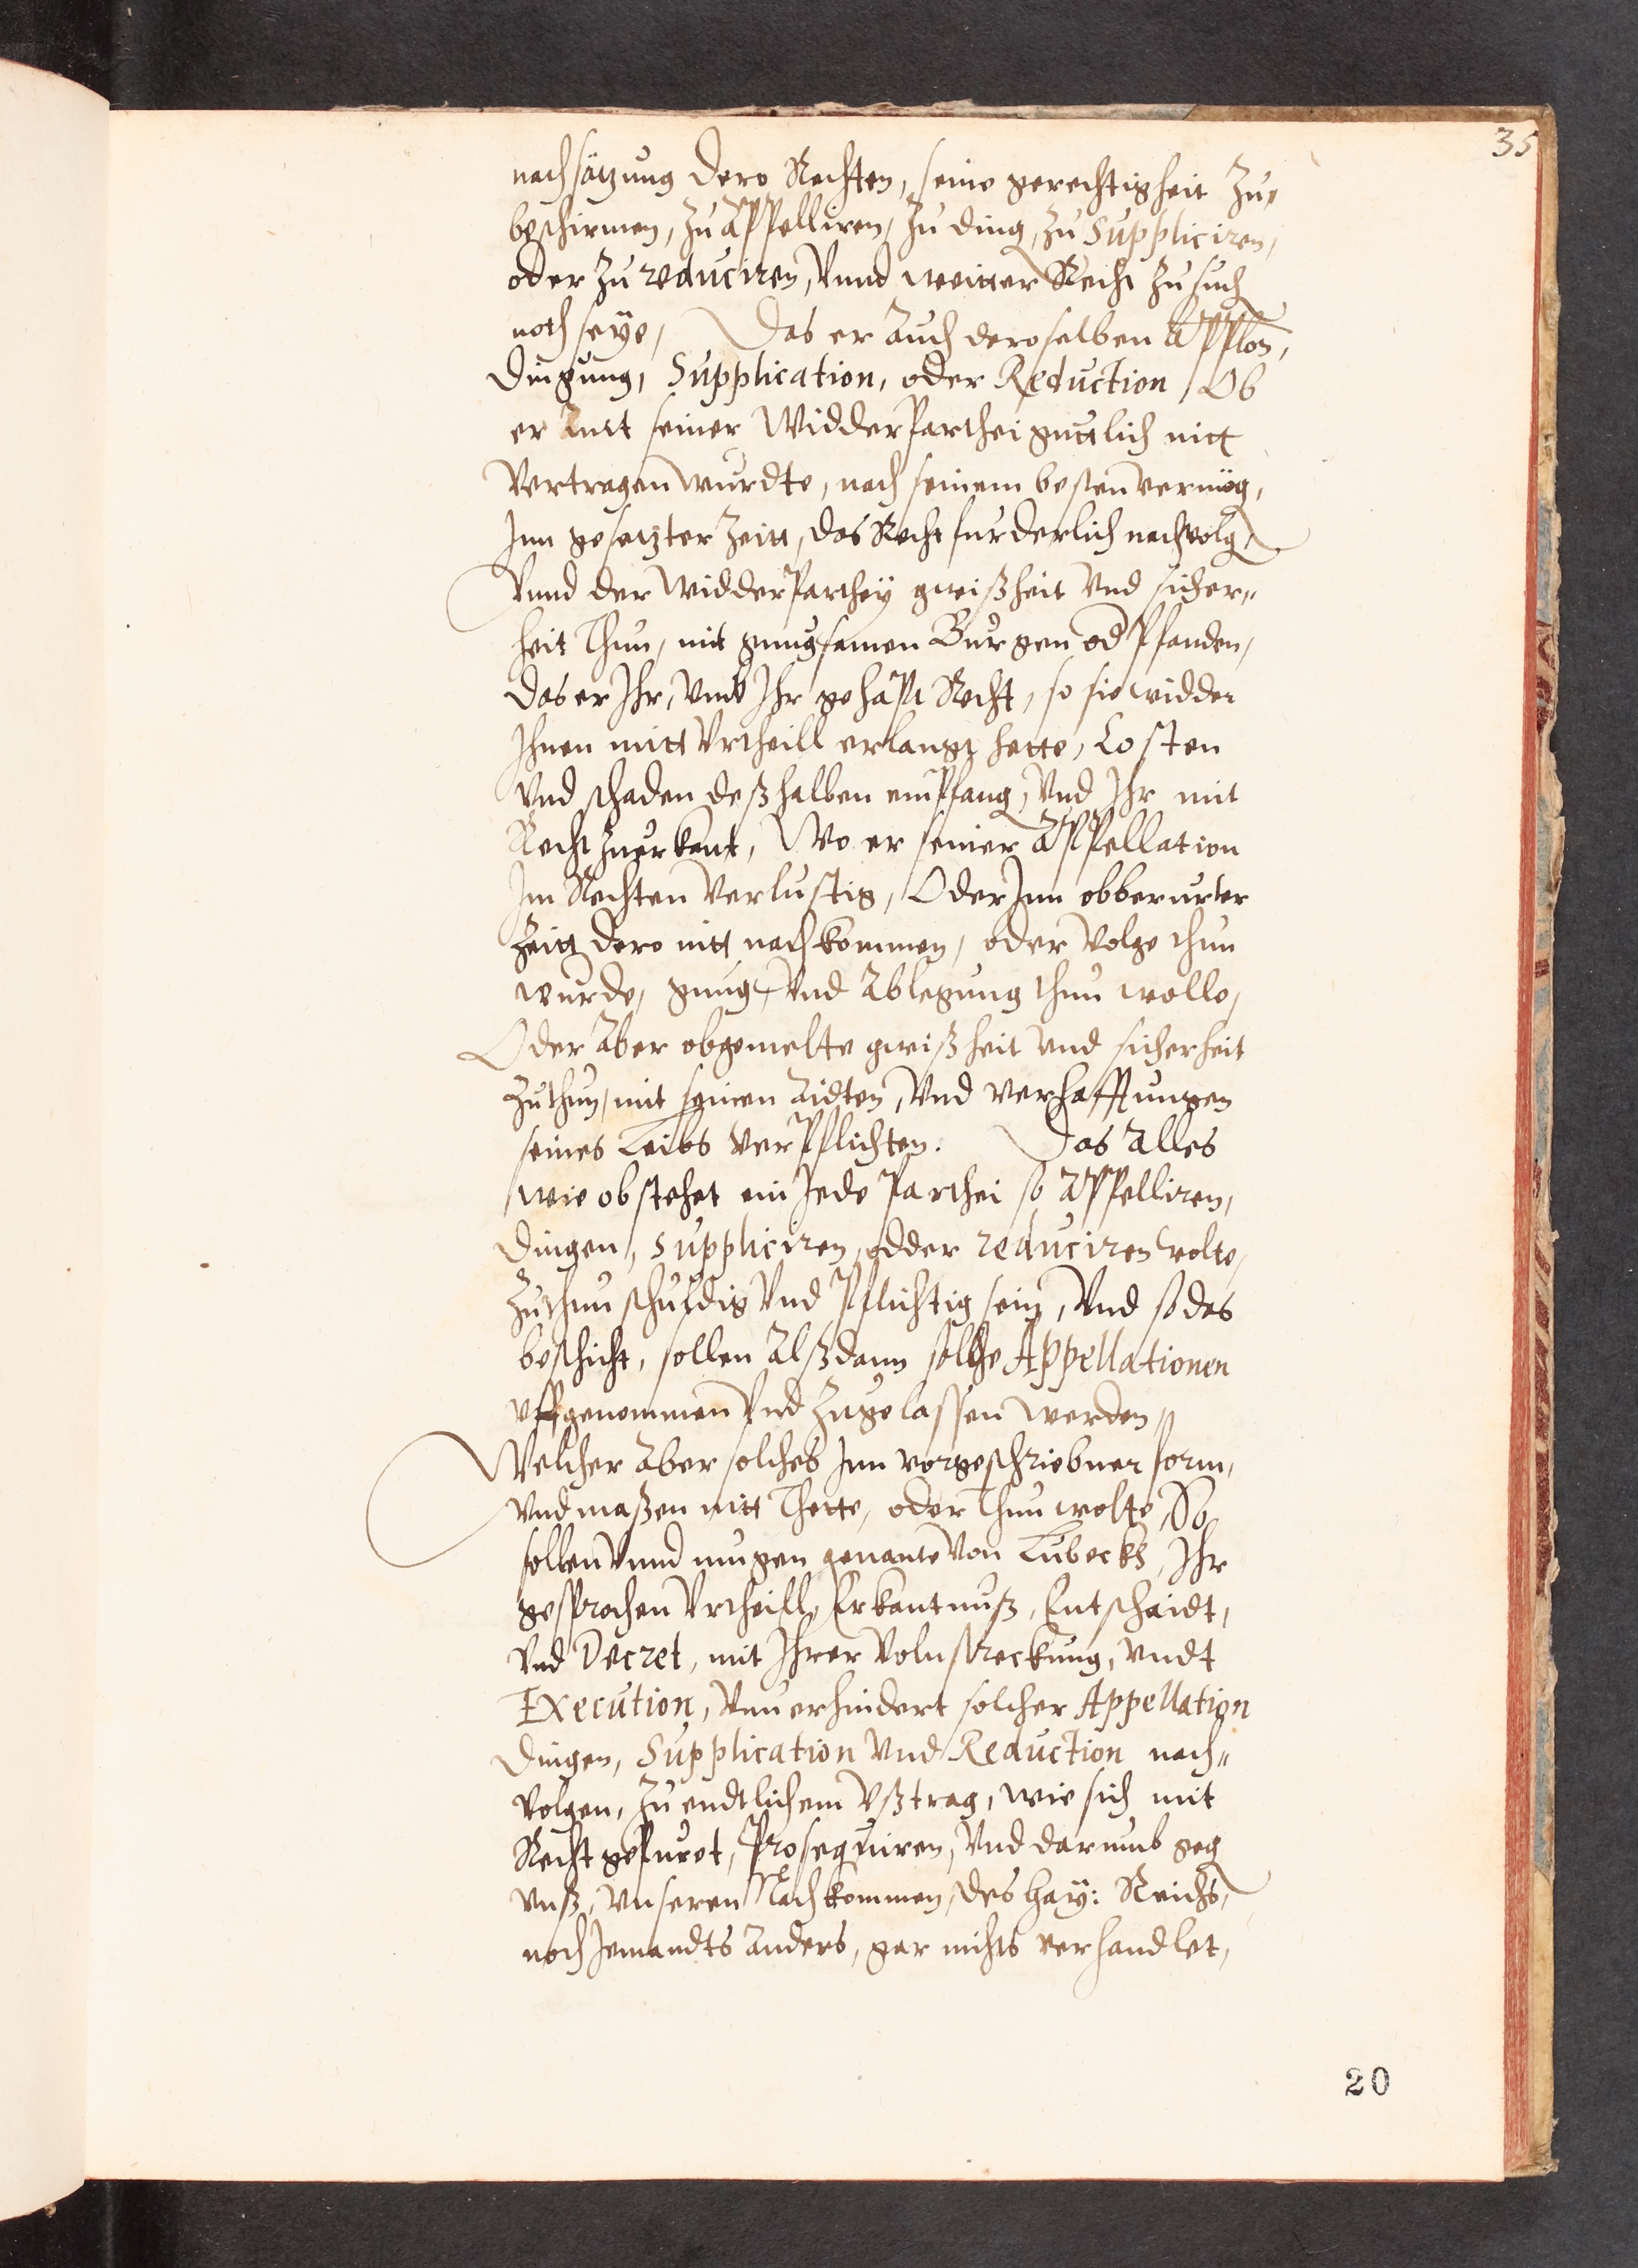 35
nach satzung dero Rechten, seine gerechtigheit Zue
beschirmen, zu Appelliren, zu ding, zu Suppliciren,
oder zu reduciren, Vnnd weitter Recht zu such
noth seye, Das er auch deroselben Applon,
Dingung, Supplication, oder Reduction, Ob
er mit seiner Widder Parthei guttlich nitt
Vertragen wurdte, nach seinem besten vermög,
Inn gesetzter Zeitt, das Recht furderlich nachvolg,
Vnnd der Widder Parthey gwißheit Vnd sicher„
heit Thun, mit gnugsamen Burgen od Pfanden,
das er Ihr, Vmb Ihr gehapt Recht, so sie widder
Ihnen mitt Vrtheill erlangt hette, Costen
Vnd schaden deßhalben empfang, Vnd Ihr mit
Recht zuerkant, Wo er seiner Appellation
Im Rechten Verlustig, Oder Inn obberurter
Zeitt dero nitt nachkommen, oder Volge thun
wurde, gnug, Vnd Ablegung thun wolle,
Oder Aber obgemelte gwißheit Vnd sicherheit
Zuthun, mit seinen Aidten, Vnd Verhafftungen
seines Leibs VerPflichten. Das Alles
wie obstehet ein Jede Parthei so Appelliren,
Dingen, suppliciren, odder reduciren wolte,
Zuthun schuldig Vnd Pflichtig sein, Vnd so das
beschicht, sollen Alßdann sollche Appellationen
vffgenommen Vnd Zugelassen werden„
Welcher Aber solches Inn vorgeschriebner form,
Vnd maßen nitt Thette, oder Thun wolte, So
sollen Vnnd mugen genante Von Lubeckh, Ihr
gesprochen Vrtheill, Erkantnuß, Entschaidt,
Vnd Decret, mit Ihrer Volnstreckung, Vndt
Execution, Vnuerhindert solcher Appellation
Dingen, Supplication Vnd Reduction nach„
Volgen, Zu endtlichem Vßtrag, wie sich mit
Recht gepuret, Prosequiren, Vnd darumb geg
vnß, Vnseren Nachkommen, des hay: Reichs,
noch Jemandts anders, gar nichts verhandlet,
20